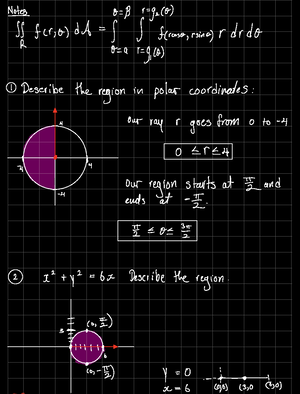 Notes
θ=β r=g₂(θ)
∬ f(r,θ) dA = ∫ ∫ f(rcosθ, rsinθ) r dr dθ
R θ=α r=g₁(θ)
① Describe the region in polar coordinates:
4
our ray r goes from 0 to -4
-4 4
0 ≤ r ≤ 4
-4
our region starts at π/2 and
ends at -π/2.
π/2 ≤ θ ≤ 3π/2
② x² + y² = 6x Describe the region
(0, π/2)
3
6
(0, -π/2)
y = 0
x = 6
(0,0) (3,0)